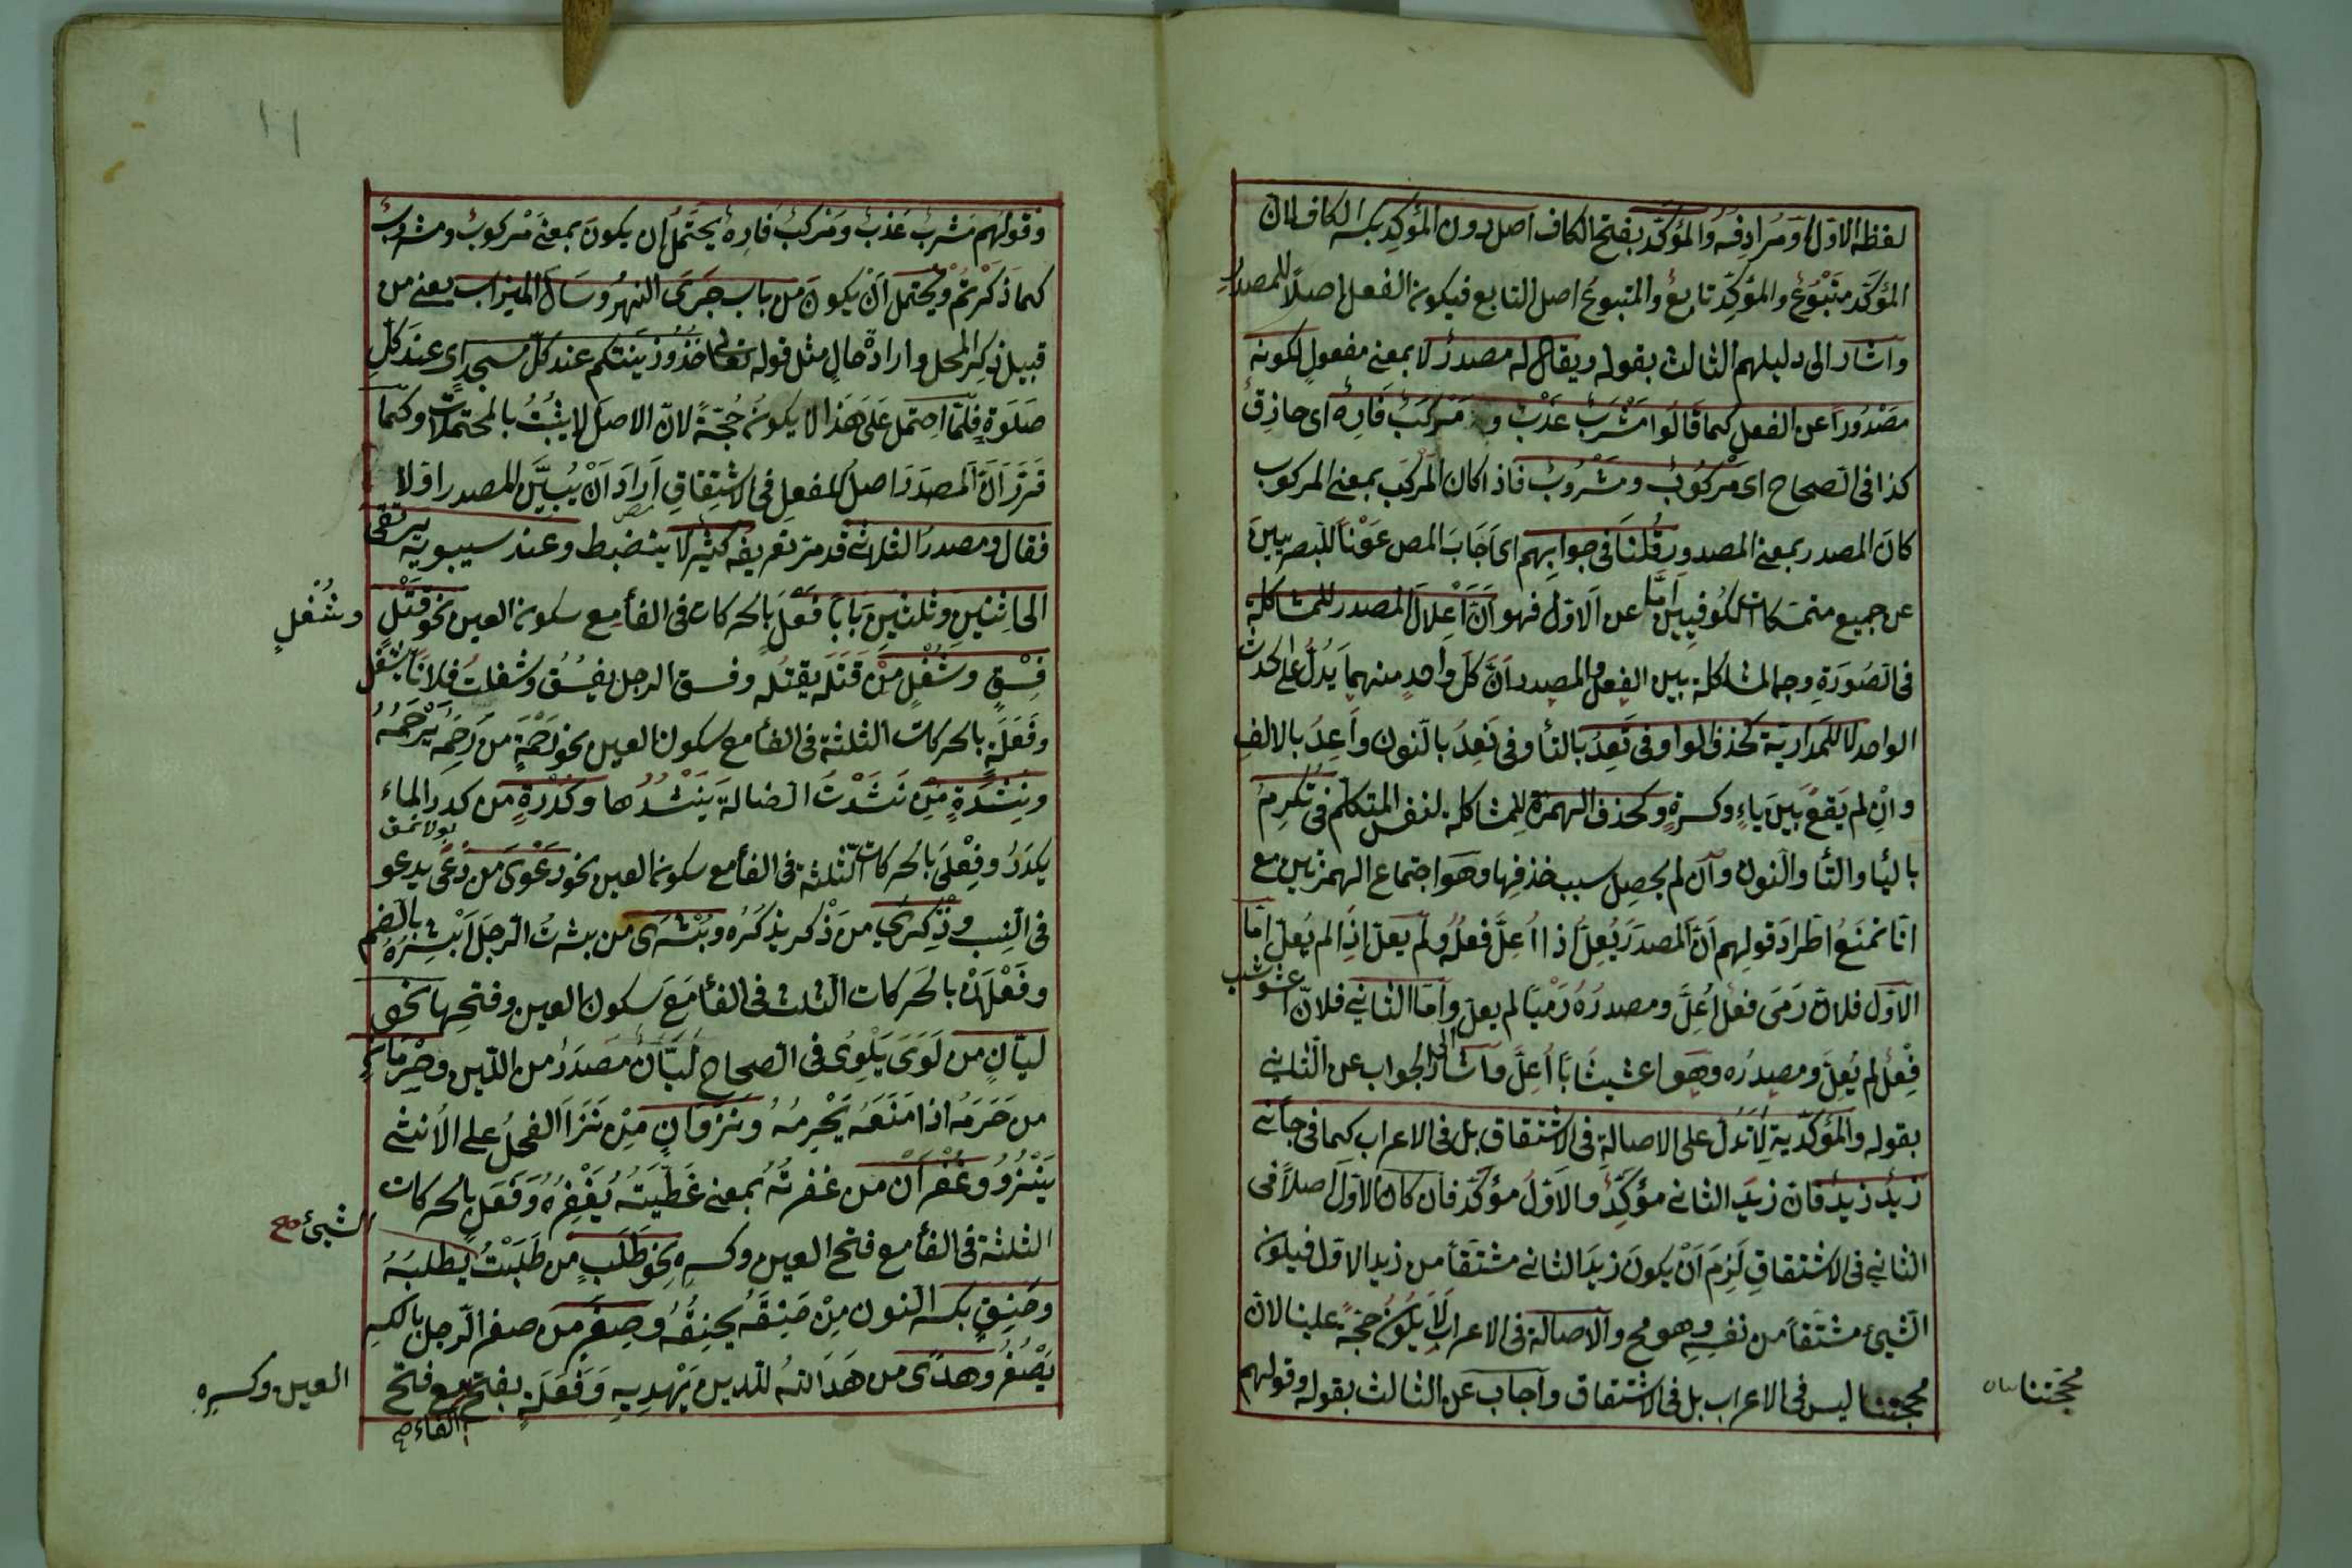 لفظه الاول او مرادفه والمؤكد بفتح الكاف اصل دون المؤكد بكسر الكاف لان
المؤكَّد متبوع والمؤكِّد تابع والمتبوع اصل التابع فيكون الفعل اصلاً للمصدر
واشار الى دليلهم الثالث بقوله ويقال له مصدر لا بمعنى مفعول لكونه
مصدوراً عن الفعل كما قالوا مشرب عذب و مركب فاره اى حاذق
كذا فى الصحاح اى مركوب ومشروب فاذا كان المركب بمعنى المركوب
كان المصدر بمعنى المصدور قلنا فى جوابهم اى اجاب المص عونا للبصريين
عن جميع متمسكات الكوفيين اما عن الاول فهو ان اعلال المصدر للمشاكلة
فى الصورة وجه المشاكلة بين الفعل والمصدر ان كل واحد منهما يدل على الحدث
الواحد لا للمدارية كحذف الواو فى تعد بالتا وفى نعد بالنون واعد بالالف
وان لم يقع بين ياء وكسرة وكحذف الهمزة للمشاكلة لنفس المتكلم فى تكرم
باليا والتا والنون وان لم يحصل سبب حذفها وهو اجتماع الهمزتين مع
انا نمنع اطراد قولهم ان المصدر يعل اذا اعل فعله ولم يعل اذا لم يعل اما
الاول فلان رمى فعل اعل ومصدره رميا لم يعل واما الثانى فلان اعشوشب
فعل لم يعل ومصدره وهو اعشيشابا اعل واشار الى الجواب عن الثانى
بقوله والمؤكدية لا تدل على الاصالة فى الاشتقاق بل فى الاعراب كما فى جانى
زيد زيد فان زيد الثانى مؤكد والاول مؤكد فان كان الاول اصلاً فى
الثانى فى الاشتقاق لزم ان يكون زيد الثانى مشتقا من زيد الاول فيكون
الشئ مشتقا من نفسه وهو مح والاصالة فى الاعراب لا يكون حجة علينا لان
محجتنا ليس فى الاعراب بل فى الاشتقاق واجاب عن الثالث بقوله وقولهم
محجتنا
١١
وقولهم مشرب عذب ومركب فاره يحتمل ان يكون بمعنى مركوب ومشروب
كما ذكرتم ويحتمل ان يكون من باب جرى النهر وسال الميزاب يعنى من
قبيل ذكر المحل وارادة حال مثل قوله تعالى خذوا زينتكم عند كل مسجد اى عند كل
صلوة فلما احتمل على هذا لا يكون حجة لان الاصل لا يثبت بالمحتملات وكما
قرر ان المصدر اصل للفعل فى الاشتقاق اراد ان يبين المصدر اولا
فقال ومصدر الثلاثى قد مر تعريفه كثير لا ينضبط وعند سيبويه يرتقى
الى اثنين وثلثين بابا فعل بالحركات فى الفا مع سكون العين نحو قتل
وشغل
فسق وشغل من قتله يقتله وفسق الرجل يفسق وشغلت فلانا يشغل
وفعلة بالحركات الثلثة فى الفا مع سكون العين نحو رحمة من رحمه يرحمه
ونشدة من نشدت الضالة ينشدها وكدرة من كدر الماء
يكدر وفعلى بالحركات الثلثة فى الفا مع سكون العين نحو دعوى من دعى يدعو
فى النسب وذكرى من ذكر يذكره وبشرى من بشرت الرجل ابشره بالضم
وفعلان بالحركات الثلث فى الفا مع سكون العين وفتحها نحو
ليان من لوى يلوى فى الصحاح ليان مصدر من اللين وحرمان
من حرمه اذا منعه يحرمه ونزوان من نزا الفحل على الانثى
ينزو وغفران من غفرته بمعنى غطيته يغفره وفعل بالحركات
الثلثة فى الفا مع فتح العين وكسره نحو طلب من طلبت يطلبه
الشئ صح
وخنق بكسر النون من خنقه يخنقه وصغر من صغر الرجل بالكسر
يصغر وهدى من هداه الله للدين يهديه وفعلة بفتح مع فتح
الفاء صح
العين وكسره